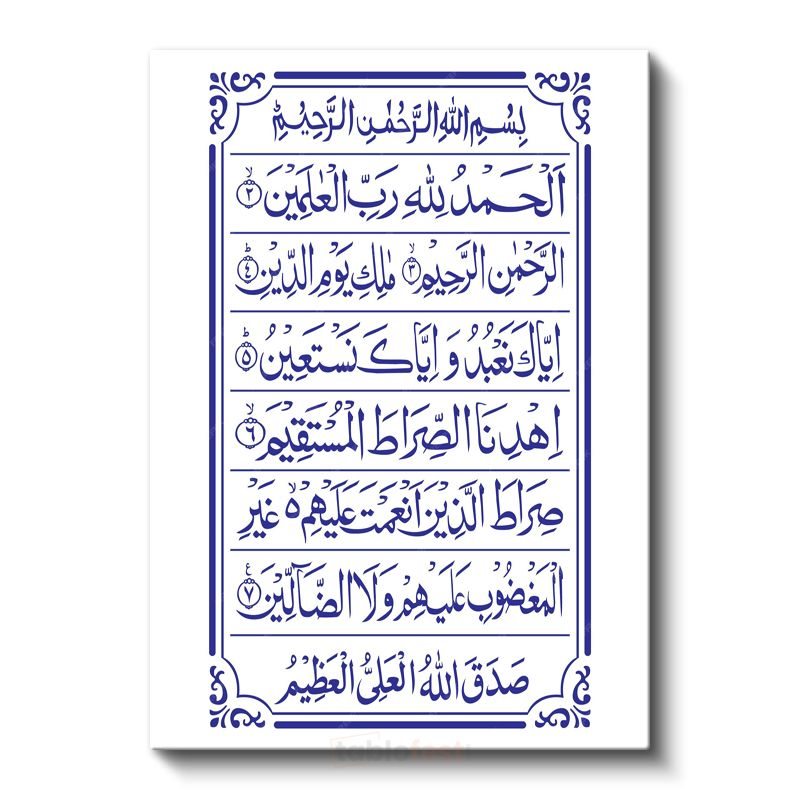 بِسْمِ اللهِ الرَّحْمٰنِ الرَّحِيْمِ
اَلْحَمْدُ لِلّٰهِ رَبِّ الْعٰلَمِيْنَ ۙ﴿۲﴾
الرَّحْمٰنِ الرَّحِيْمِ ۙ﴿۳﴾ مٰلِكِ يَوْمِ الدِّيْنِ ؕ﴿۴﴾
اِيَّاكَ نَعْبُدُ وَ اِيَّاكَ نَسْتَعِيْنُ ؕ﴿۵﴾
اِهْدِنَا الصِّرَاطَ الْمُسْتَقِيْمَ ۙ﴿۶﴾
صِرَاطَ الَّذِيْنَ اَنْعَمْتَ عَلَيْهِمْ ۙ۵ غَيْرِ
الْمَغْضُوْبِ عَلَيْهِمْ وَلَا الضَّآلِّيْنَ ﴿۷﴾
صَدَقَ اللهُ الْعَلِىُّ الْعَظِيْمُ
tablofest